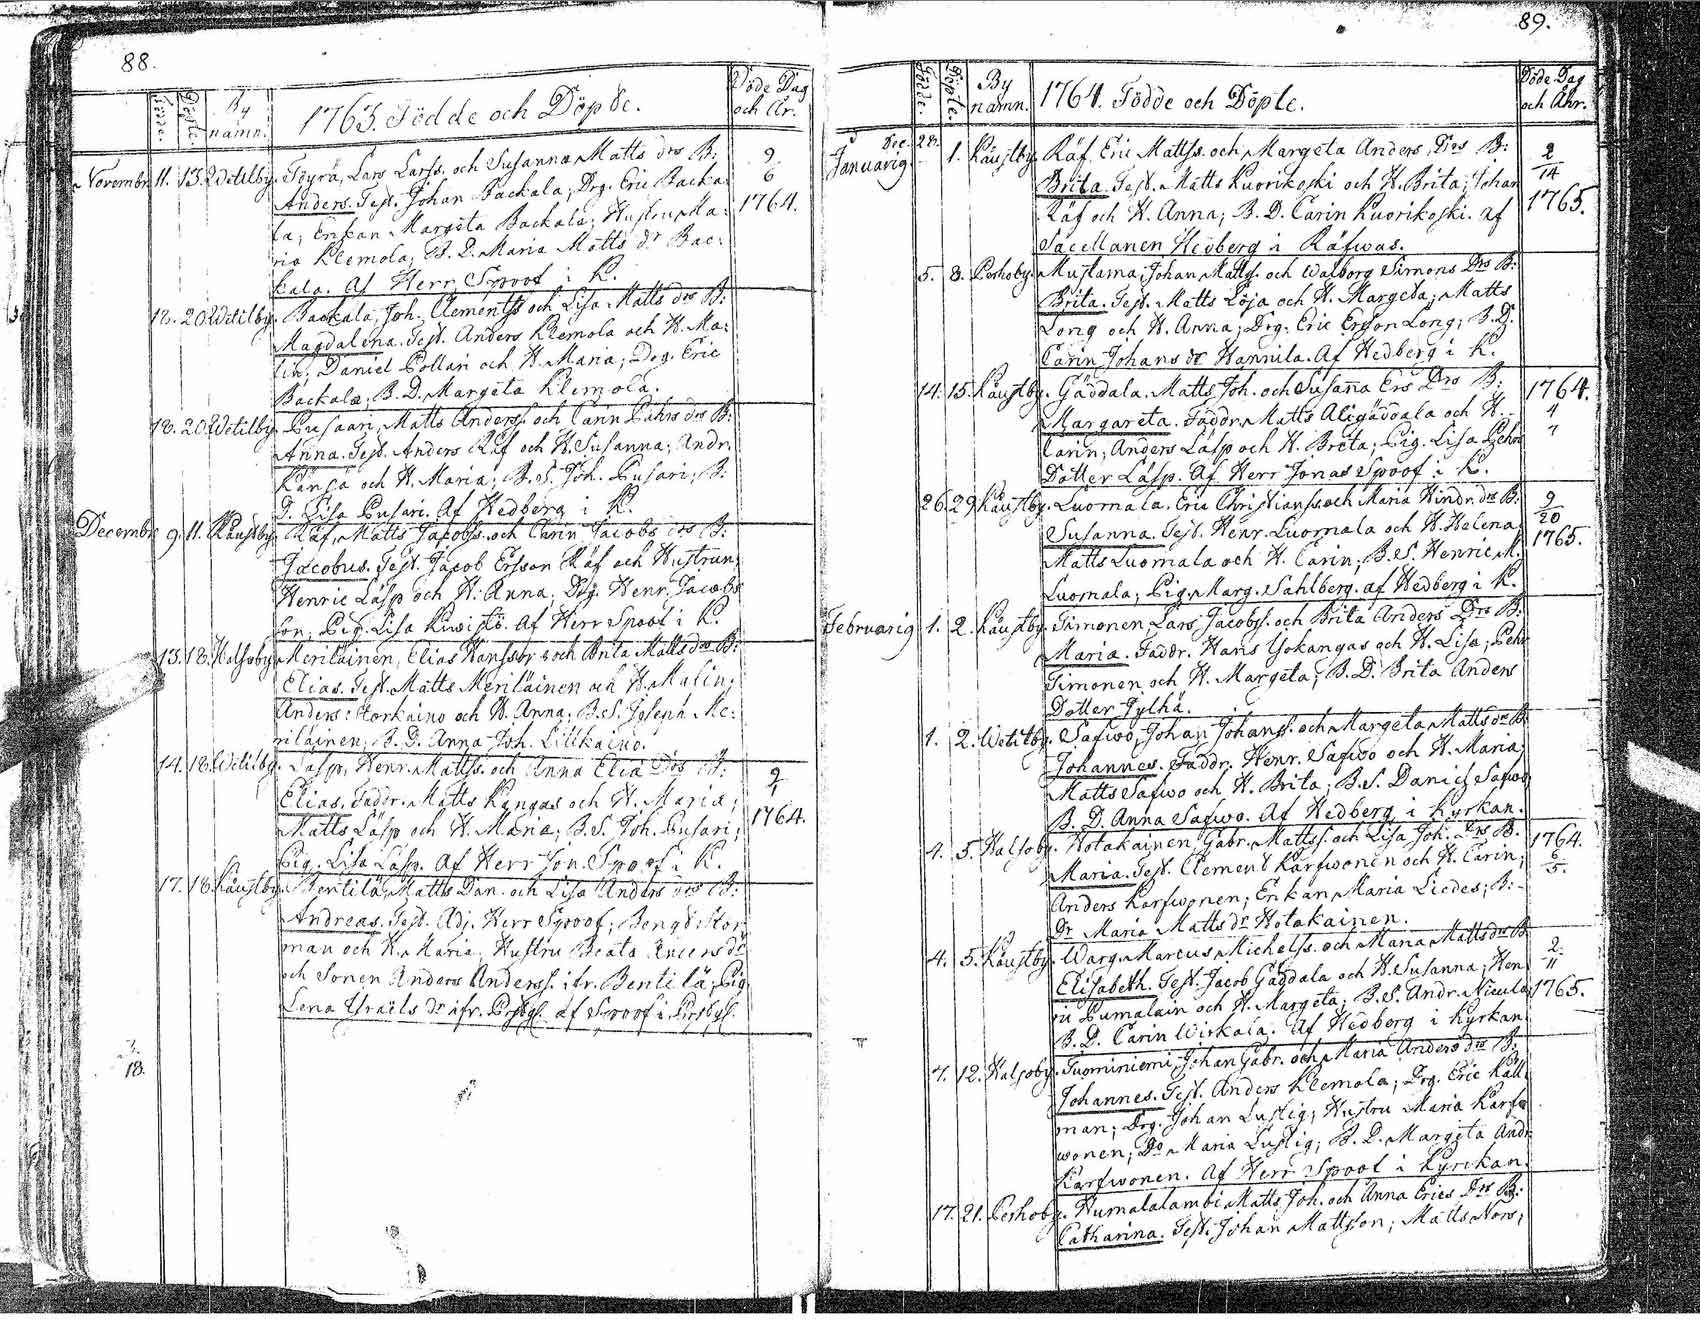 88.
Födde.
Döpte.
By
namn.
1763. Födde och Döpde.
Döde Dag
och År.
Novembr. 11. 13. Wetilby. Töyrä, Lars Larss. och Susanna Matts drs B: 9/6
Anders. Test. Johan Backala; Drg. Eric Backa: 1764.
la; Enkan Margeta Backala; Hustru Ma:
ria Klemola; B. D. Maria Matts dr Bac:
kala. Af Herr Spoof i K.
18. 20. Wetilby. Backala, Joh. Clementss och Lisa Matts drs B:
Magdalena. Test. Anders Klemola och H. Ma:
lin; Daniel Pollari och H. Maria; Drg. Eric
Backala; B. D. Margeta Klemola.
18. 20. Wetilby. Pusaari, Matts Anderss. och Carin Pährs drs B:
Anna. Test. Anders Räf och H. Susanna; Andr.
Kangas och H. Maria; B. S. Joh. Pusari; B:
D. Lisa Pusari. Af Hedberg i K.
Decembr. 9. 11. Käustby. Räf, Matts Jacobss. och Carin Jacobs drs B:
Jacobus. Test. Jacob Ersson Räf och Hustrun;
Henric Läsp och H. Anna; Drg. Henr. Jacobs
son; Pig. Lisa Kuusistö. Af Herr Spoof i K.
13. 18. Halsoby. Meriläinen, Elias Hansson och Brita Matts drs B:
Elias. Test. Matts Meriläinen och H. Malin;
Anders Storkaino och H. Anna; B. S. Joseph Me:
riläinen; B. D. Anna Joh. Lillkaino.
14. 18. Wetilby. Läsp, Henr. Mattss. och Anna Eliæ Drs B: 9/1
Elias. Faddr. Matts Kangas och H. Maria; 1764.
Matts Läsp och H. Maria; B. S. Joh. Pusari;
Pig. Lisa Läsp. Af Herr Jon. Spoof i K.
17. 18. Käustby. Bentilä, Matts Dan. och Lisa Anders drs B:
Andreas. Test. Adj. Herr Spoof; Bengt Stor
man och H. Maria; Hustru Beata Anders dr
och Sonen Anders Anderss. ifr. Bentilä; Pig.
Lena Israels dr ifr. Prsbgl. af Spoof i Prsbgl.
18.
89.
Födde.
Döpte.
By
namn.
1764. Födde och Döpte.
Döde Dag
och Åhr.
Dec. 28.
Januarig. 1. Käustby. Räf, Eric Mattss. och Margeta Anders Drs B: 2/14
Brita. Test. Matts Kuorikoski och H. Brita; Johan 1765.
Räf och H. Anna; B. D. Carin Kuorikoski. af
Sacellanen Hedberg i Räfwas.
5. 8. Perhoby. Mustama, Johan Mattss. och Walborg Simons Drs B:
Brita. Test. Matts Löja och H. Margeta; Matts
Long och H. Anna; Drg. Eric Ersson Long; B. D.
Carin Johans dr Hannila. Af Hedberg i K.
14. 15. Käustby. Gäddala. Matts Joh. och Susanna Ers Drs B: 1764.
Margareta. Faddr. Matts Aligäddala och H. 4
Carin; Anders Läsp och H. Brita; Pig. Lisa Pehrs 7
Dotter Läsp. Af Herr Jonas Spoof i K.
26. 29. Käustby. Luomala. Eric Christianss. och Maria Hindr. drs B: 9/20
Susanna. Test. Henr. Luomala och H. Helena; 1765.
Matts Luomala och H. Carin; B. S. Henric M.
Luomala; Pig. Marg. Sahlberg. af Hedberg i K.
Februarig. 1. 2. Käustby. Timonen, Lars Jacobss. och Brita Anders Drs B:
Maria. Faddr. Hans Yokangas och H. Lisa; Pehr
Timonen och H. Margeta; B. D. Brita Anders
Dotter Jylhä.
1. 2. Wetilby. Safwo, Johan Johanss. och Margeta Matts dr B:
Johannes. Faddr. Henr. Safwo och H. Maria;
Matts Safwo och H. Brita; B. S. Daniel Safwo;
B. D. Anna Safwo. Af Hedberg i Kyrkan.
4. 5. Halsoby. Hotakainen, Gabr. Mattss. och Lisa Joh. Drs B. 1764.
Maria. Test. Clement Karfwonen och H. Carin; 6/5.
Anders Karfwonen; Enkan Maria Liedes; B:
Dr Maria Matts dr Hotakainen.
4. 5. Käustby. Warg. Marcus Michelss. och Maria Matts drs B. 2/11
Elisabeth. Test. Jacob Gäddala och H. Susanna; Hen
ric Pumalain och H. Margeta; B. S. Andr. Nicula; 1765.
B. D. Carin Wirkala. Af Hedborg i Kyrkan.
7. 12. Halsoby. Tuominiemi, Johan Gabr. och Maria Anders drs B:
Johannes. Test. Anders Klemola; Drg. Eric Käll
man; Drg. Johan Lustig; Hustru Maria Karf
wonen; Do Maria Lustig; B. D. Margeta Andr.
Karfwonen. Af Herr Spoof i Kyrckan.
17. 21. Perhoby. Humalalambi Matts Joh. och Anna Erics Drs B:
Catharina. Test. Johan Mattsson; Matts Nors;